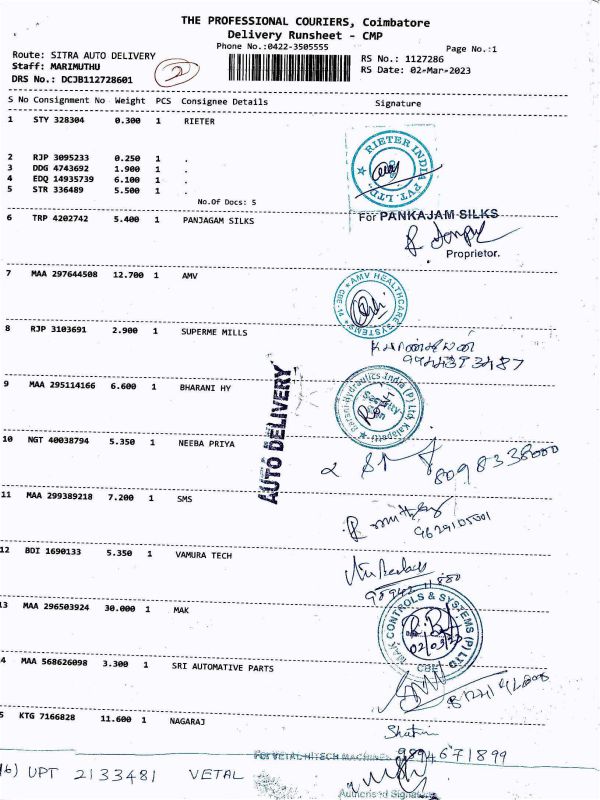 THE PROFESSIONAL COURIERS, Coimbatore
Delivery Runsheet - CMP
Phone No.:0422-3505555
Page No.:1
Route: SITRA AUTO DELIVERY
RS No.: 1127286
Staff: MARIMUTHU
2
RS Date: 02-Mar-2023
DRS No.: DCJB112728601
S No Consignment No Weight PCS Consignee Details Signature
1 STY 328304 0.300 1 RIETER
RIETER INDIA PVT. LTD.
2 RJP 3095233 0.250 1 .
3 DDG 4743692 1.900 1 .
4 EDQ 14935739 6.100 1 .
5 STR 336489 5.500 1 .
No.Of Docs: 5
For PANKAJAM SILKS
6 TRP 4202742 5.400 1 PANJAGAM SILKS
Proprietor.
7 MAA 297644508 12.700 1 AMV
AMV HEALTHCARE SYSTEMS CBE-14
8 RJP 3103691 2.900 1 SUPERME MILLS
9 MAA 295114166 6.600 1 BHARANI HY
Hydraulics India (P) Ltd, Kalapatti
Security
AUTO DELIVERY
10 NGT 40038794 5.350 1 NEEBA PRIYA
8098338000
11 MAA 299389218 7.200 1 SMS
12 BDI 1690133 5.350 1 VAMURA TECH
13 MAA 296503924 30.000 1 MAK
MAK CONTROLS & SYSTEMS (P) LTD
CBE
4 MAA 568626098 3.300 1 SRI AUTOMATIVE PARTS
5 KTG 7166828 11.600 1 NAGARAJ
9894671899
For VETAL HITECH MACHINES
16) UPT 2133481 VETAL
Authorised Signatory